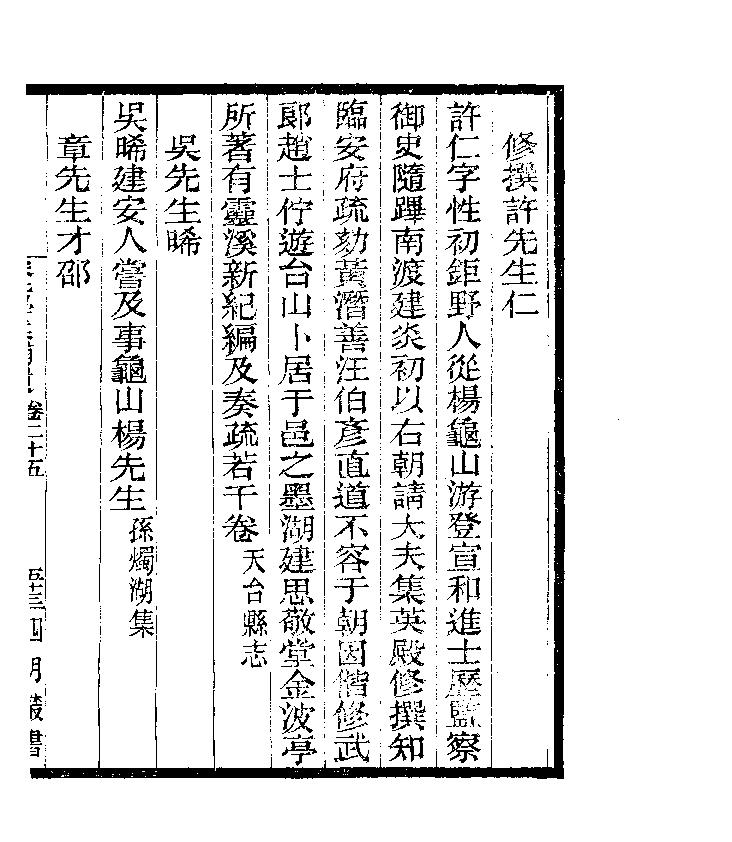 修撰許先生仁
許仁字性初鉅野人從楊龜山游登宣和進士歷監察
御史隨蹕南渡建炎初以右朝請大夫集英殿修撰知
臨安府疏劾黃潛善汪伯彥直道不容于朝因偕修武
郞趙士佇遊台山卜居于邑之墨湖建思敬堂金波亭
所著有靈溪新紀編及奏疏若干卷天台縣志
吳先生晞
吳晞建安人嘗及事龜山楊先生孫燭湖集
章先生才邵
卷二十五
四明叢書